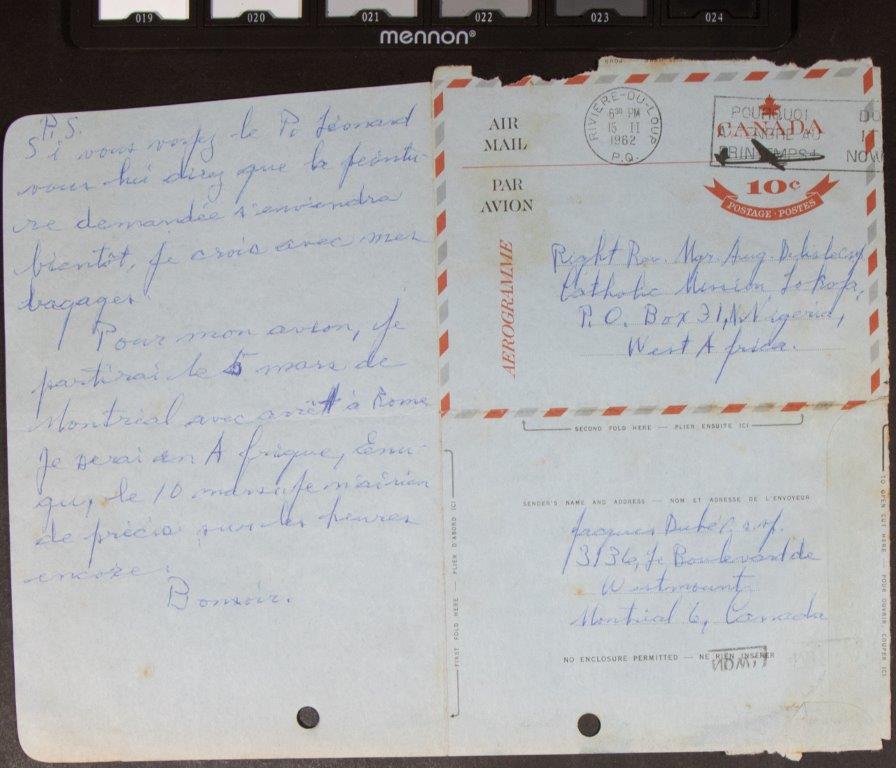 019 020 021 022 023 024
mennon®
P.S.
Si vous voyez le P. Léonard
vous lui direz que la peintu-
re demandée s'enviendra
bientôt, je crois avec mes
bagages.
Pour mon avion, je
partirai le 5 mars de
Montréal avec arrêt à Rome
Je serai en Afrique, Enu-
gu, le 10 mars. Je n'ai rien
de précis sur les heures
encore.
Bonsoir.
AIR
MAIL
PAR
AVION
AEROGRAMME
RIVIÈRE-DU-LOUP
6 30 PM
15 II
1962
P.Q.
POURQUOI
PRINTEMPS
DO
IT
NOW
CANADA
10¢
POSTAGE·POSTES
Right Rev. Mgr. Aug. Delisle c.s.sp.
Catholic Mission Lokoja,
P.O. Box 31, N. Nigeria,
West Africa.
SECOND FOLD HERE — PLIER ENSUITE ICI
SENDER'S NAME AND ADDRESS — NOM ET ADRESSE DE L'ENVOYEUR
Jacques Dubé, c.s.sp.
3136, Le Boulevard de
Westmount
Montréal 6, Canada
NO ENCLOSURE PERMITTED — NE RIEN INSÉRER
FIRST FOLD HERE — PLIER D'ABORD ICI
TO OPEN CUT HERE — POUR OUVRIR COUPER ICI